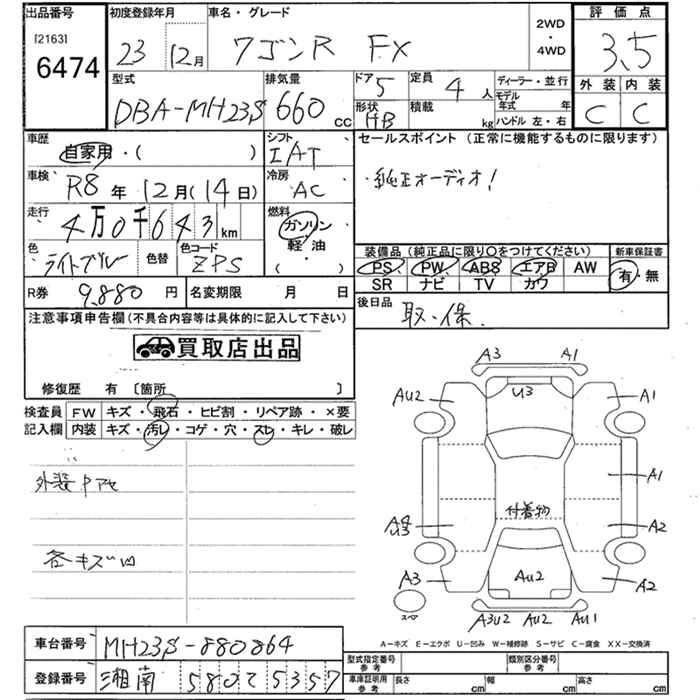 出品番号
[2163]
6474
初度登録年月
23 12月
車名・グレード
ワゴンR FX
2WD
・
4WD
評価点
3.5
外装 内装
C C
型式
DBA-MH23S
排気量
660 cc
ドア
5
形状
HB
定員
4人
積載
kg
ディーラー・並行
モデル年式 年
ハンドル 左・右
車歴
自家用・( )
シフト
IAT
車検
R8年 12月(14日)
冷房
AC
走行
4万0千643km
燃料
ガソリン
軽油
( )
色
ライトブルー
色替
色コード
ZPS
R券
9,880円
名変期限 月 日
セールスポイント (正常に機能するものに限ります)
・純正オーディオ!
装備品 (純正品に限り○をつけてください)
PS PW ABS エアB AW
SR ナビ TV カワ
新車保証書
有・無
後日品
取・保.
注意事項申告欄(不具合内容等は具体的に記入して下さい)
買取店出品
修復歴 有 〔箇所 〕
検査員
記入欄
FW キズ・飛石・ヒビ割・リペア跡・×要
内装 キズ・汚レ・コゲ・穴・スレ・キレ・破レ
外装
各キズ凹
A3 A1
AU2 U3 A1
A1
付着物
A2
A3 AU2 A2
スペア
A3U2 AU2 AU1
A-キズ E-エクボ U-凹み W-補修跡 S-サビ C-腐食 XX-交換済
車台番号
MH23S-880864
登録番号
湘南 580 そ 5357
型式指定番号
参考
類別区分番号
参考
車庫証明用
参考
長さ cm 幅 cm 高さ cm